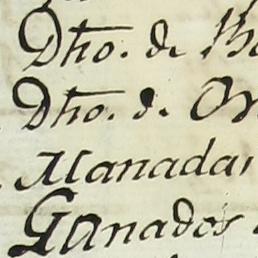 Dho. de
Dho. de
Manadas
Ganados